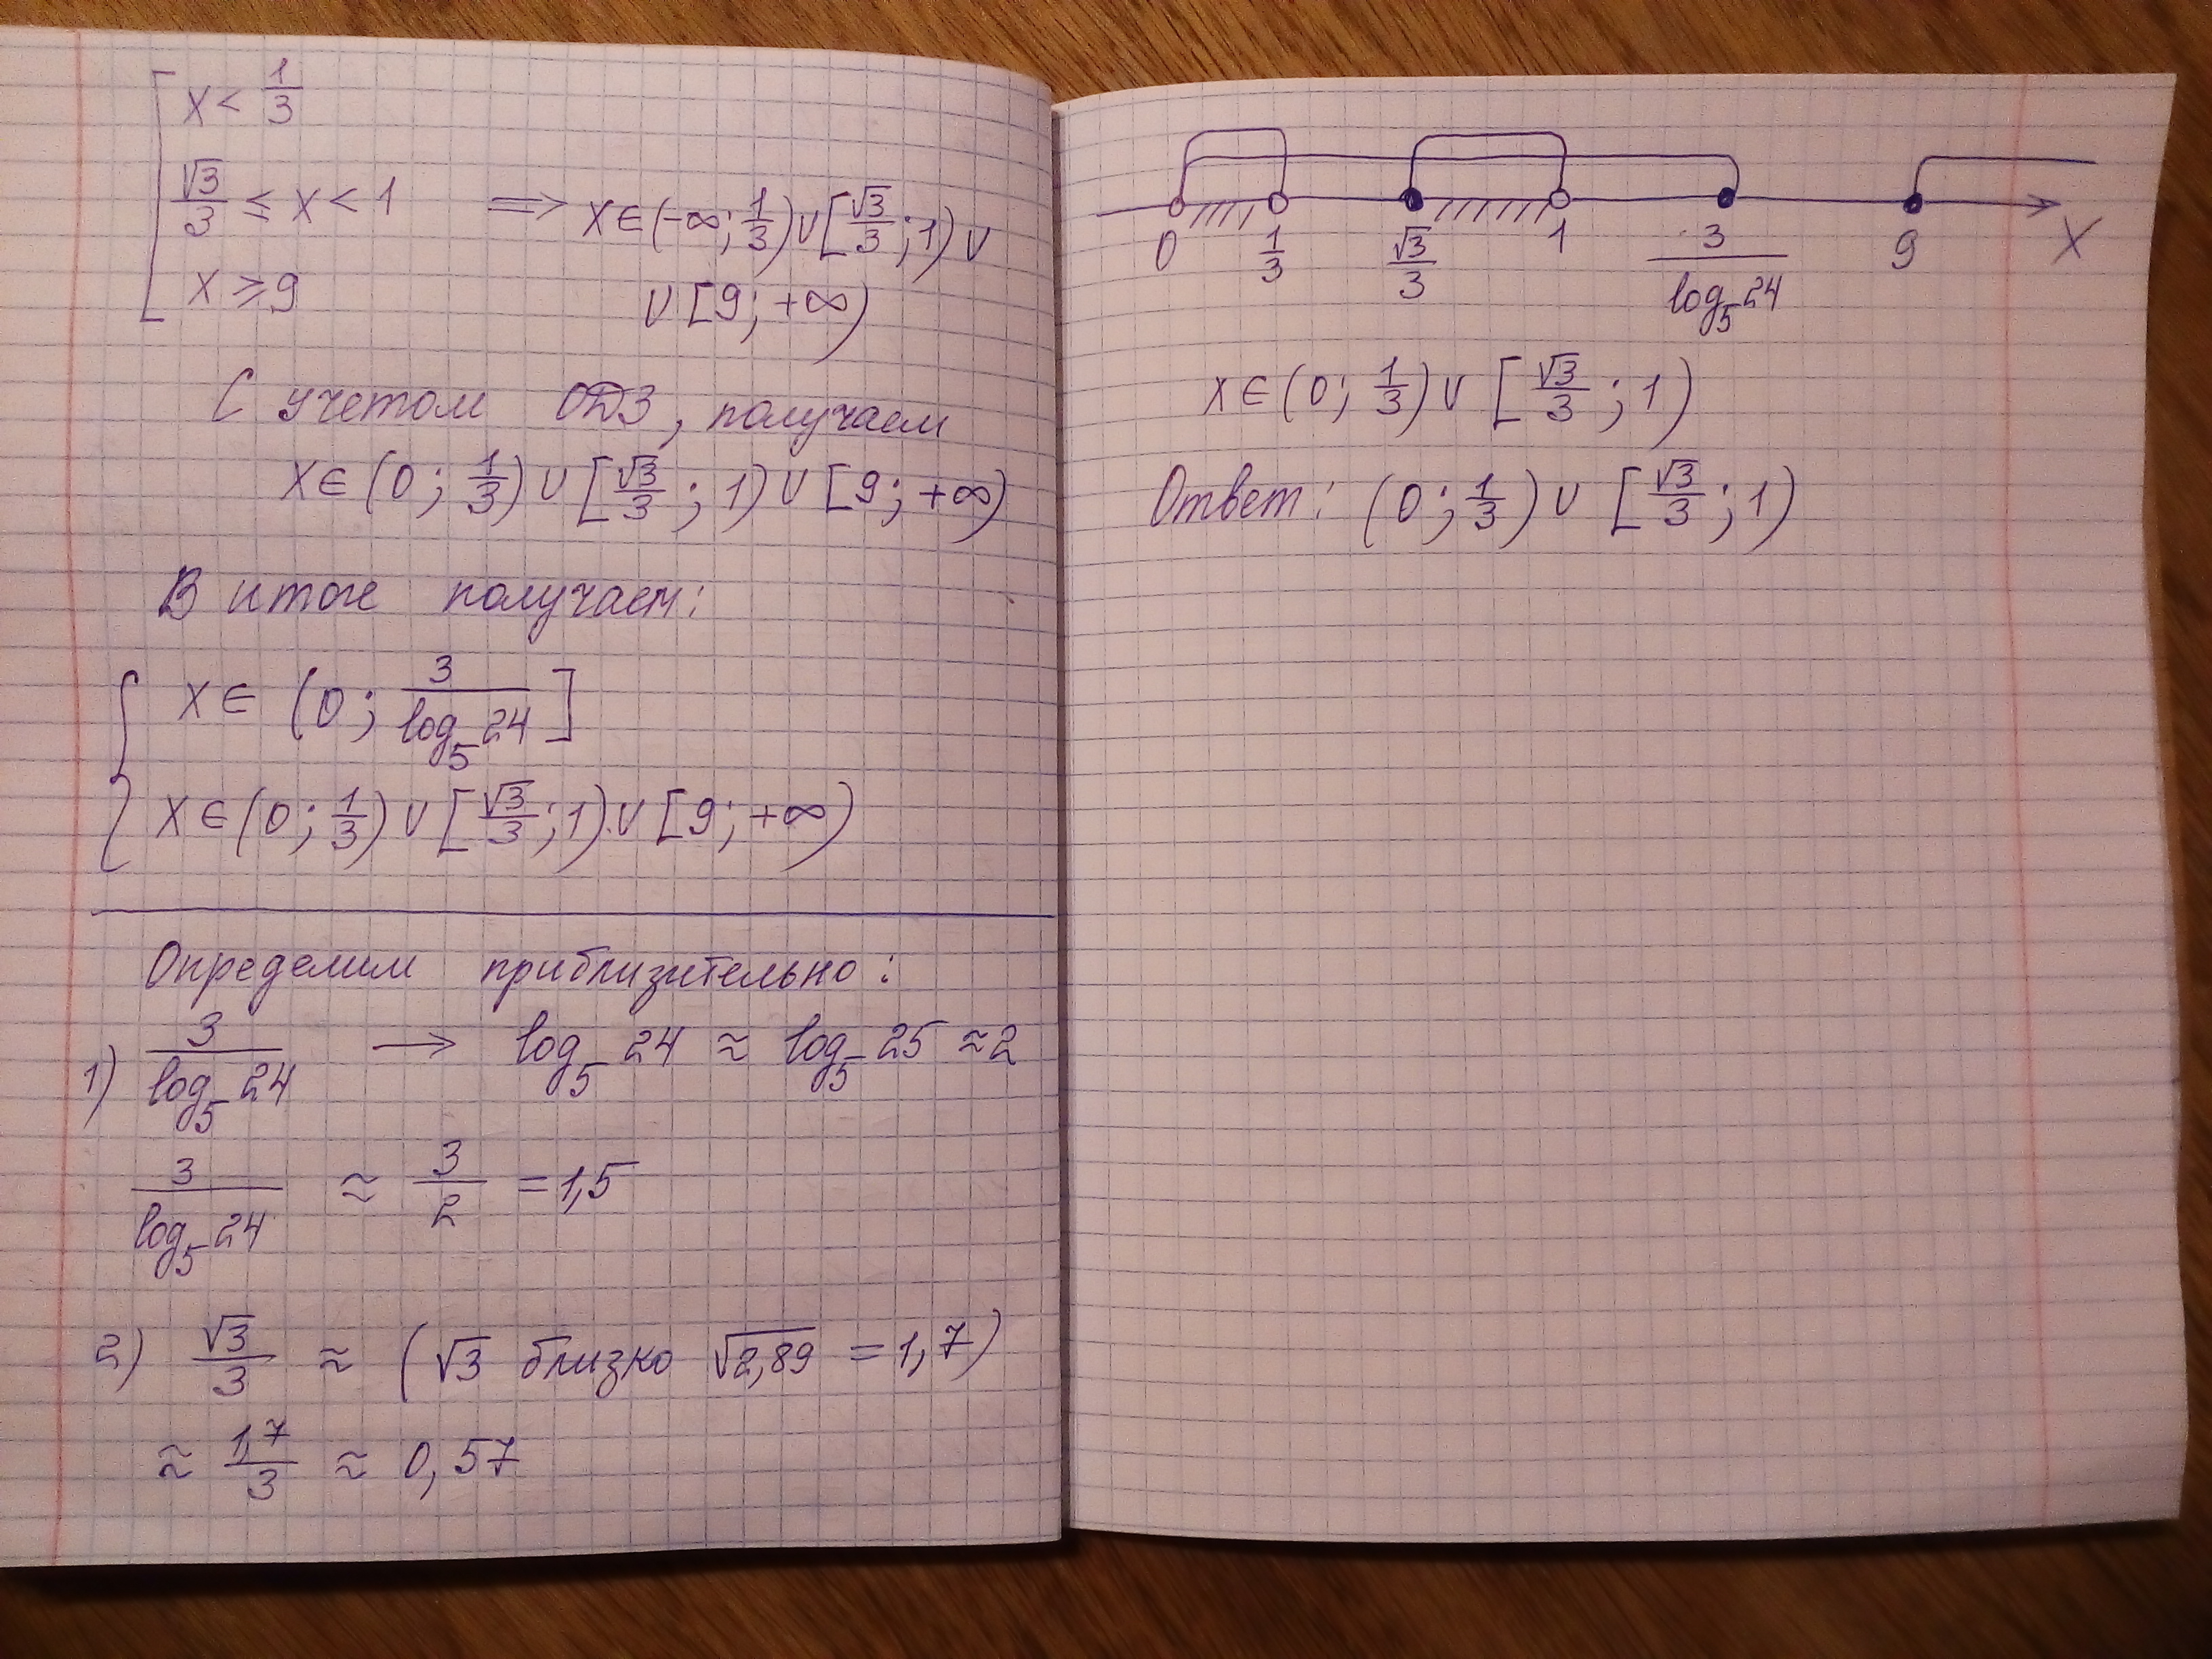 x < 1/3
√3/3 ≤ x < 1 ⟹ x ∈ (-∞; 1/3) ∪ [√3/3; 1) ∪
x ≥ 9 ∪ [9; +∞)
С учетом ОДЗ, получаем
x ∈ (0; 1/3) ∪ [√3/3; 1) ∪ [9; +∞)
В итоге получаем:
x ∈ (0; 3/log₅24]
x ∈ (0; 1/3) ∪ [√3/3; 1) ∪ [9; +∞)
Определим приблизительно:
1) 3/log₅24 → log₅24 ≈ log₅25 ≈ 2
3/log₅24 ≈ 3/2 = 1,5
2) √3/3 ≈ (√3 близко √2,89 = 1,7)
≈ 1,7/3 ≈ 0,57
0 1/3 √3/3 1 3/log₅24 9 X
x ∈ (0; 1/3) ∪ [√3/3; 1)
Ответ: (0; 1/3) ∪ [√3/3; 1)